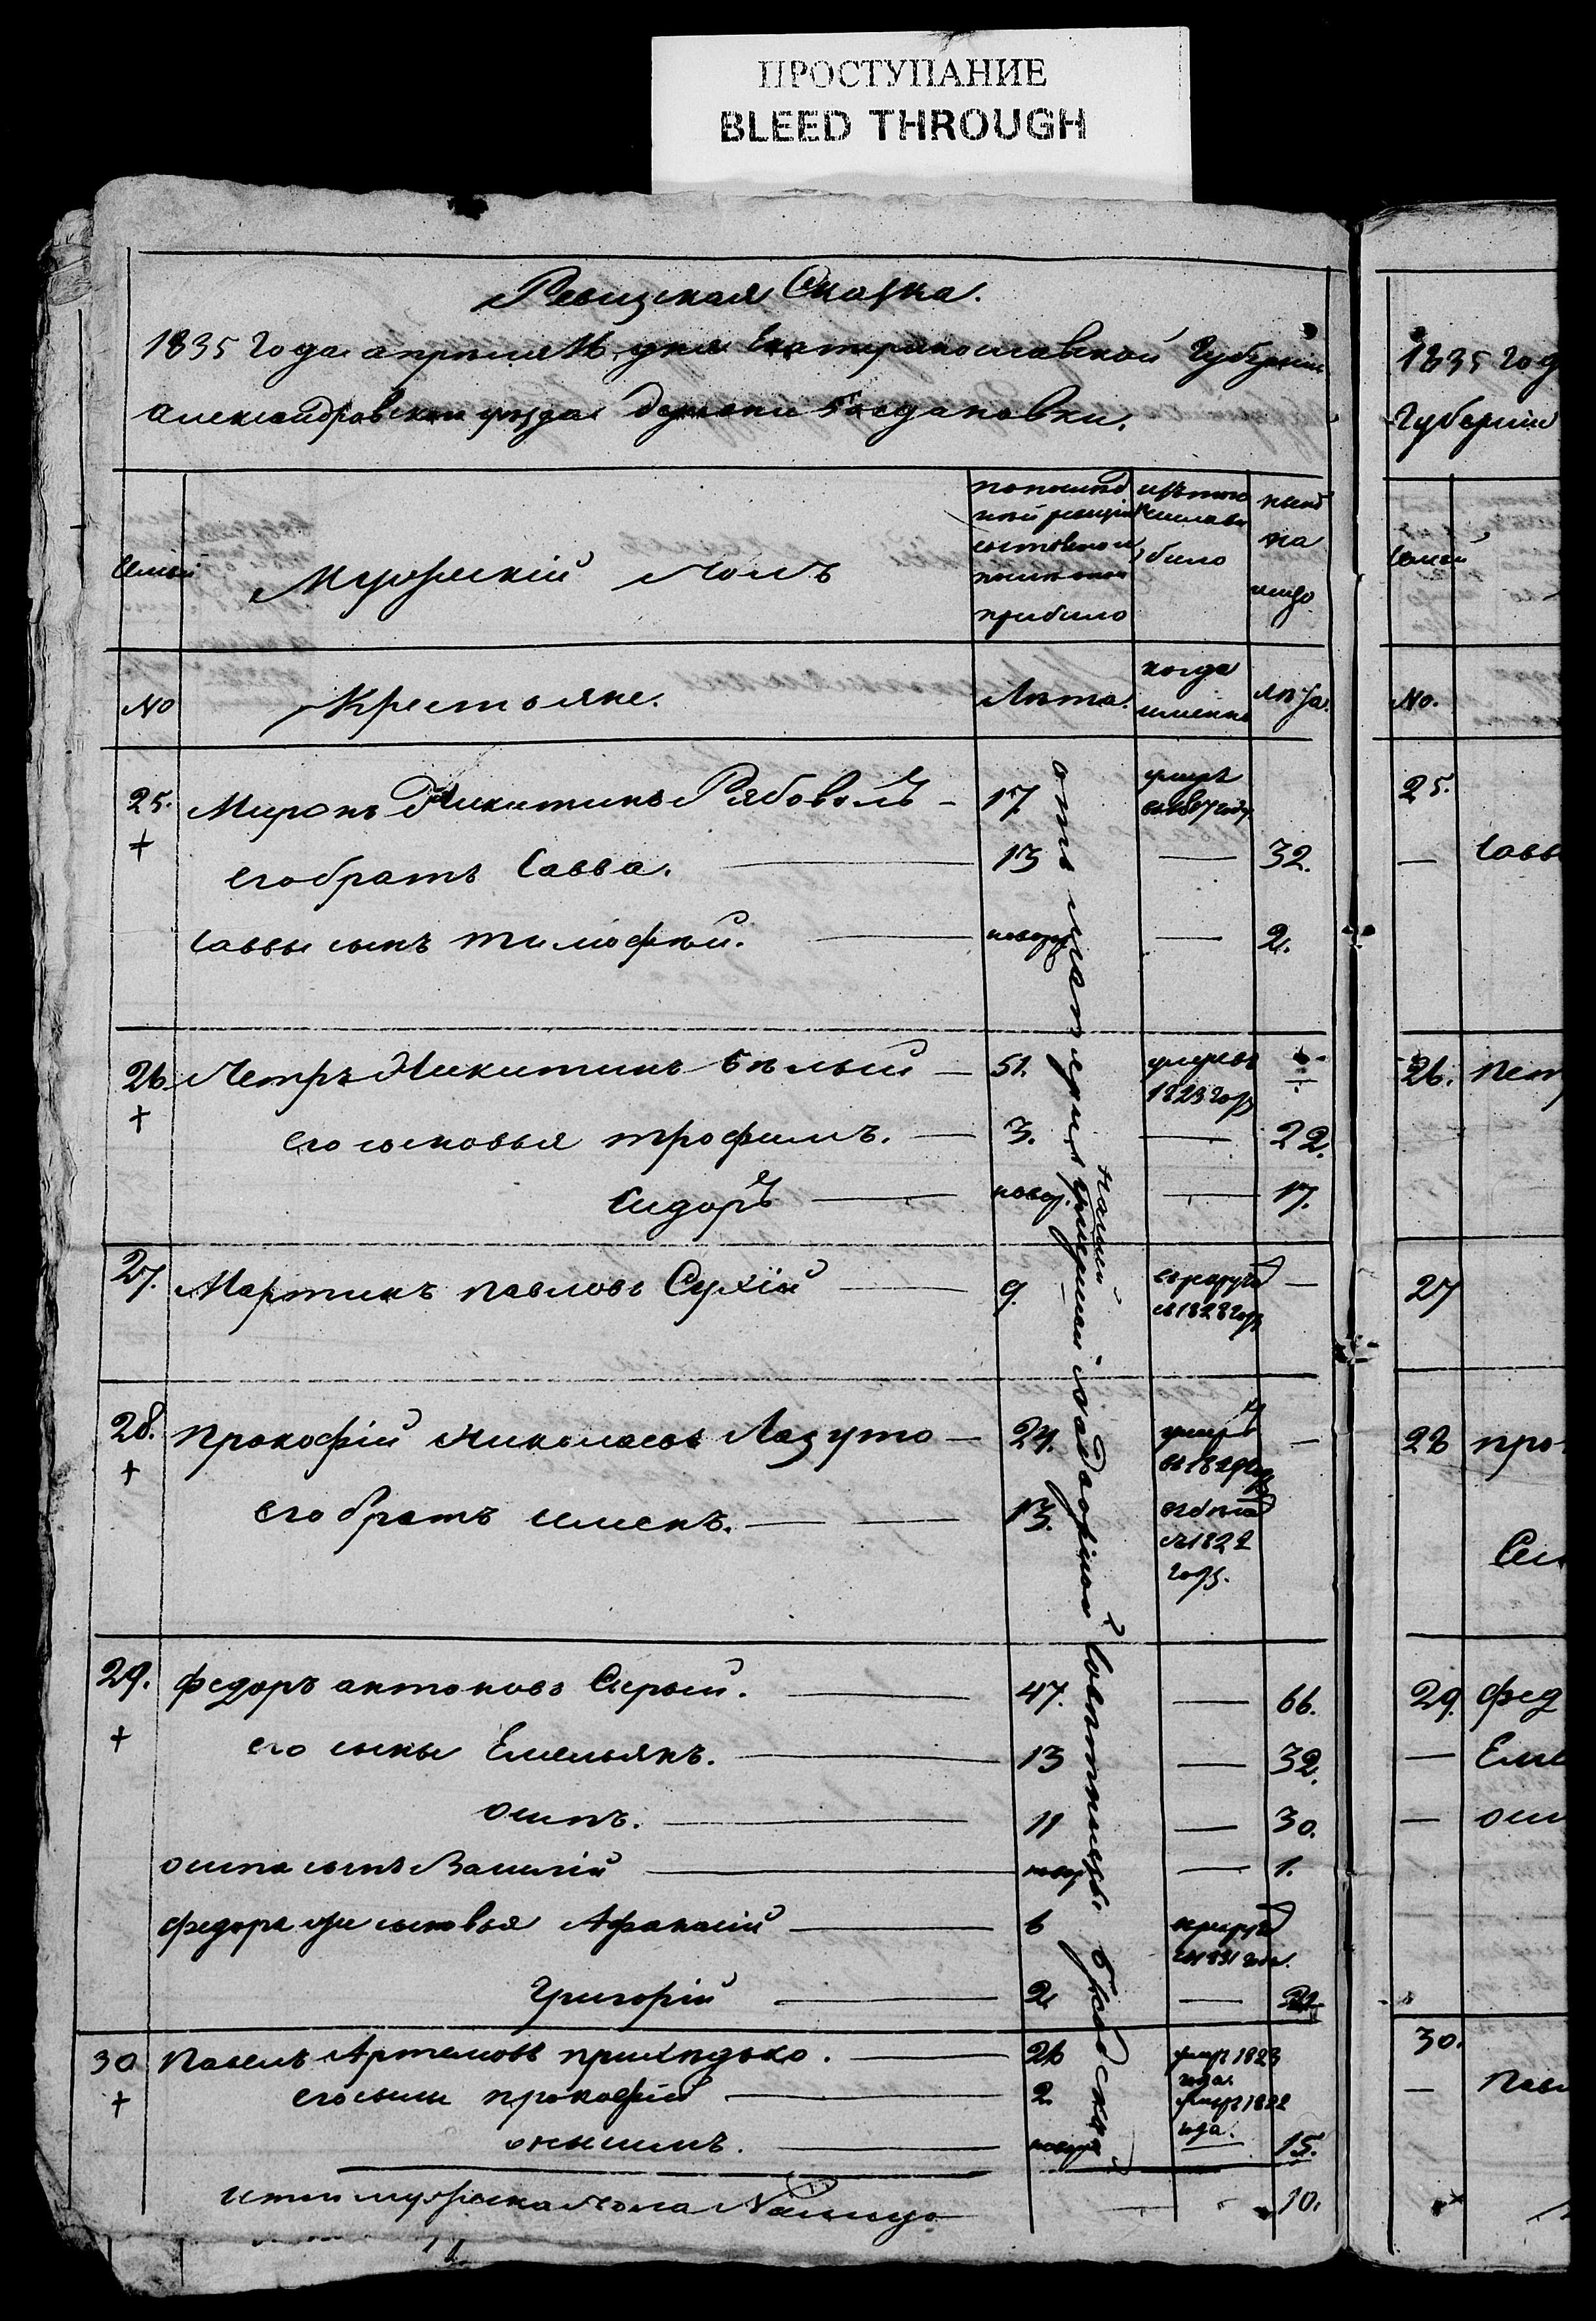 ПРОСТУПАНИЕ
BLEED THROUGH
Ревизская Сказка.
1835 Года апреля 16 дня Екатеринославской Губернии
Александровского уезда деревни Богдановки.
Семьи
Мужескій полъ
по послѣд
ней ревизіи
состояло и
после оной
прибыло
изъ того
числа вы
было
нынѣ
на
лицо
№
Крестьяне.
Лѣта.
когда
именно
лѣта.
25. Миронъ Никитинъ Рябоволъ - 17 умеръ въ 1817 году
его братъ Савва. 13 — 32.
Саввы сынъ тимофѣй. новор — 2.
26. Петръ Никитинъ бѣлый — 51. умеръ въ 1823 году
его сыновья трофимъ. — 3. — 22.
Сидоръ — новор. — 17.
27. Мартинъ павловъ Сухій — 9. въ рекруты въ 1828 году —
28. прокофій николаевъ Лазуто — 24. умеръ въ 1829 году —
его братъ семенъ. — 13. въ бѣгахъ съ 1822 году.
29. федоръ антоновъ Серый. — 47. — 66.
его сыны Емельянъ. — 13 — 32.
осипъ. — 11 — 30.
осипа сынъ Василій — новор — 1.
федора же сыновья Афанасій — 6 рекрутъ 1831 года.
Григорій — 2 — 21
30 Павелъ Артемовъ прихидько. — 26 умеръ 1823 года.
его сыны прокофій — 2 умеръ 1822 года.
онысимъ. — новор — 15.
Итого мужеска пола На лицо 10.
Надворной Совѣтницы
1835 Год
Губерніи
Семьи
№.
25.
Савв
26. Пет
27
28 про
29. фед
— Еме
— оси
30.
— Пав